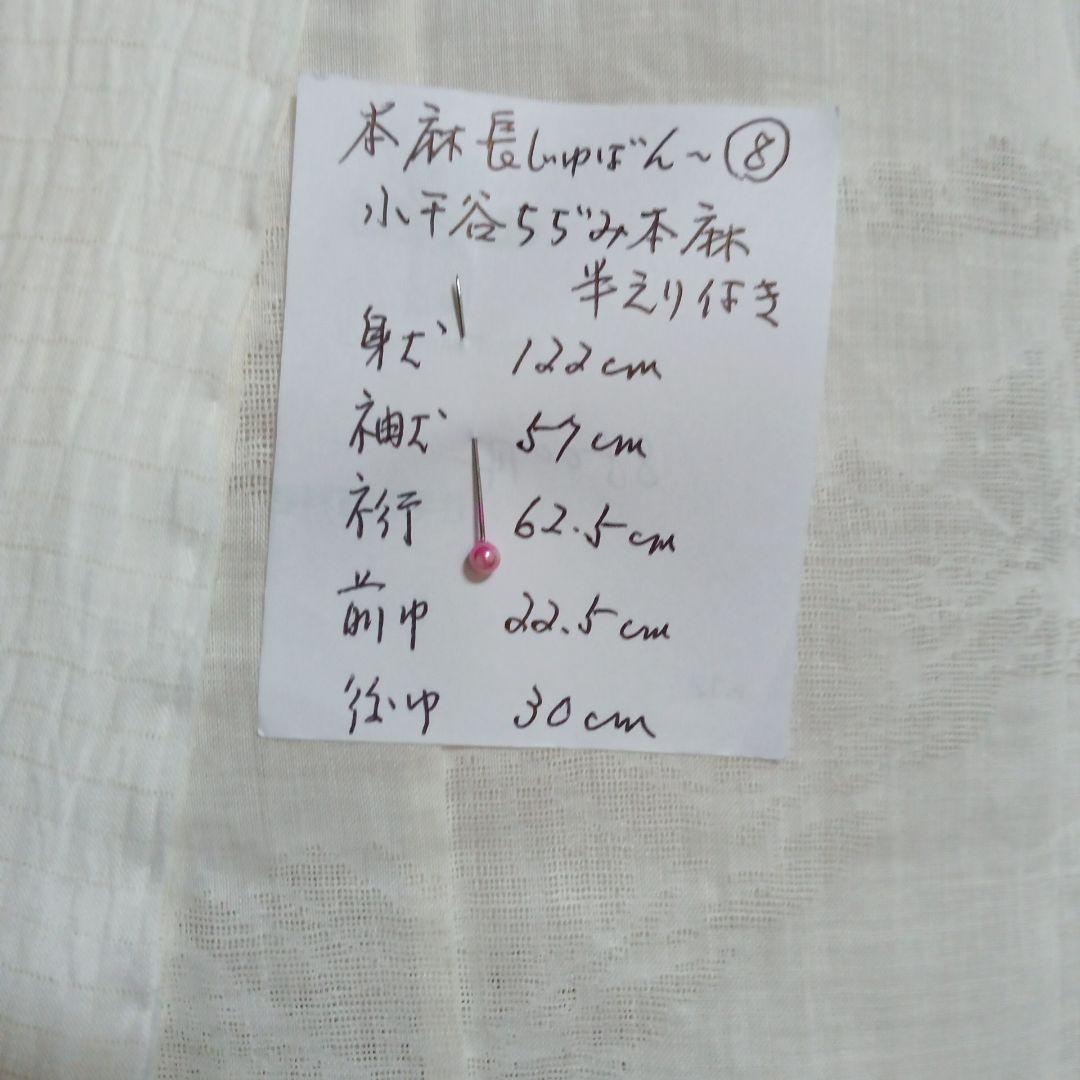 本麻長じゅばん～⑧
小千谷ちぢみ本麻
半えり付き
身丈 122cm
袖丈 57cm
裄 62.5cm
前巾 22.5cm
後巾 30cm